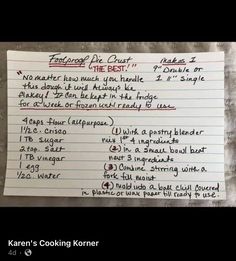 Foolproof Pie Crust makes 1
"THE BEST!" 9" Double or
"No matter how much you handle 1 8" Single
this dough it will always be
flakey! It can be kept in the fridge
for a week or frozen until ready to use
4 cups flour (all purpose)
1 1/2 c. Crisco (1) With a pastry blender
1 TB sugar mix 1st 4 ingredients
2 tsp. salt (2) In a small bowl beat
1 TB vinegar next 3 ingredients
1 egg (3) Combine stirring with a
1/2 c. water fork till moist
(4) Mold into a ball chill covered
in plastic or wax paper till ready to use.
Karen's Cooking Korner
4d ·